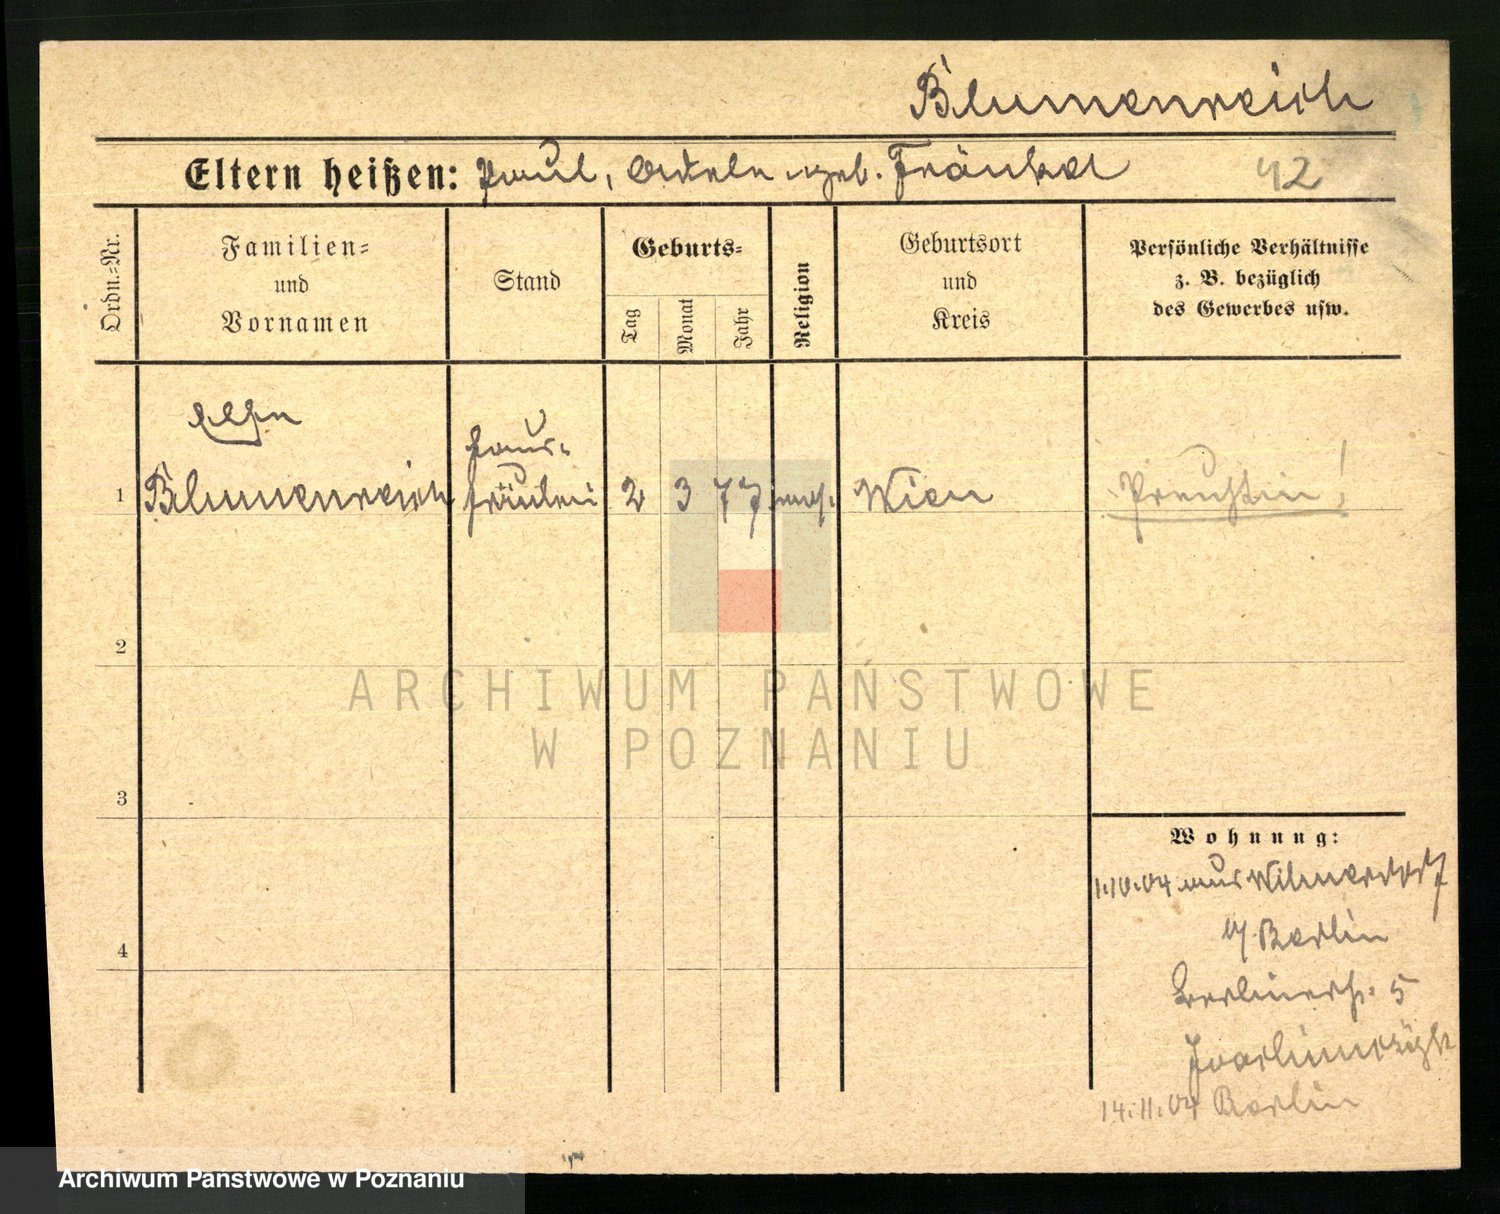 Blumenreich
Eltern heißen: Paul, Adele geb. Fränkel 42
Ordn.-Nr.
Familien-
und
Vornamen
Stand
Geburts-
Tag
Monat
Jahr
Religion
Geburtsort
und
Kreis
Persönliche Verhältnisse
z. B. bezüglich
des Gewerbes usw.
Haus-
1 Blumenreich fräulein 2 3 77 mos. Wien Preußin!
2
3
4
Wohnung:
1.10.04 aus Wilmersdorf
b/ Berlin
Berlinerstr. 5
14.11.04 Berlin
ARCHIWUM PAŃSTWOWE
W POZNANIU
Archiwum Państwowe w Poznaniu